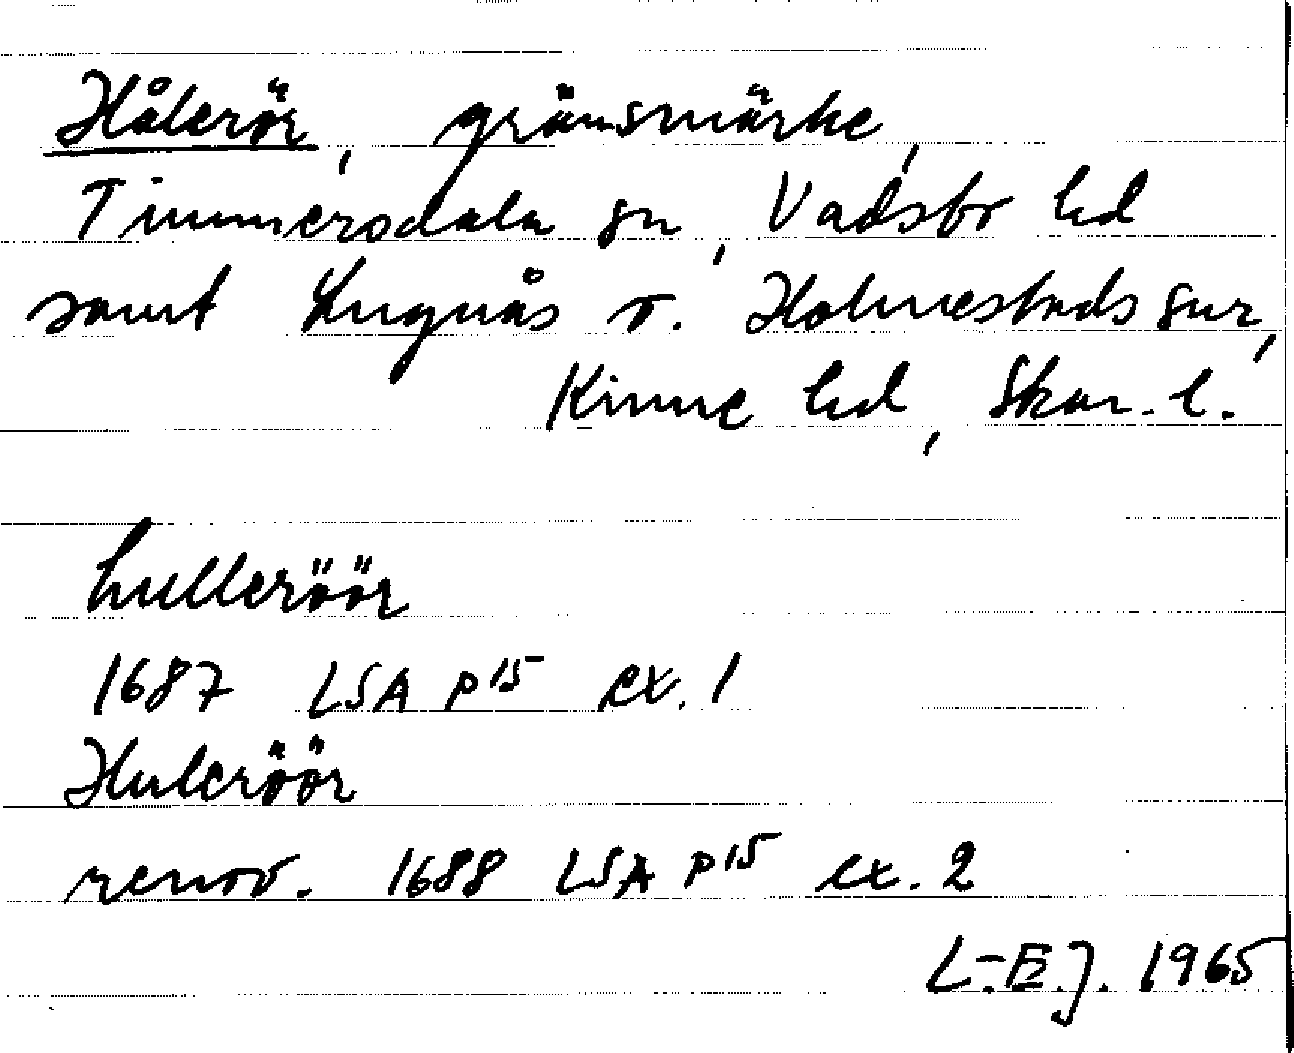 Hålerör, gränsmärke,
Timmersdala sn, Vadsbo hd
samt Lugnås o. Holmestads snr,
Kinne hd, Skar. l.
hulleröör
1687 LSA P15 ex. 1
Huleröör
renov. 1688 LSA P15 ex. 2
L.-E. J. 1965